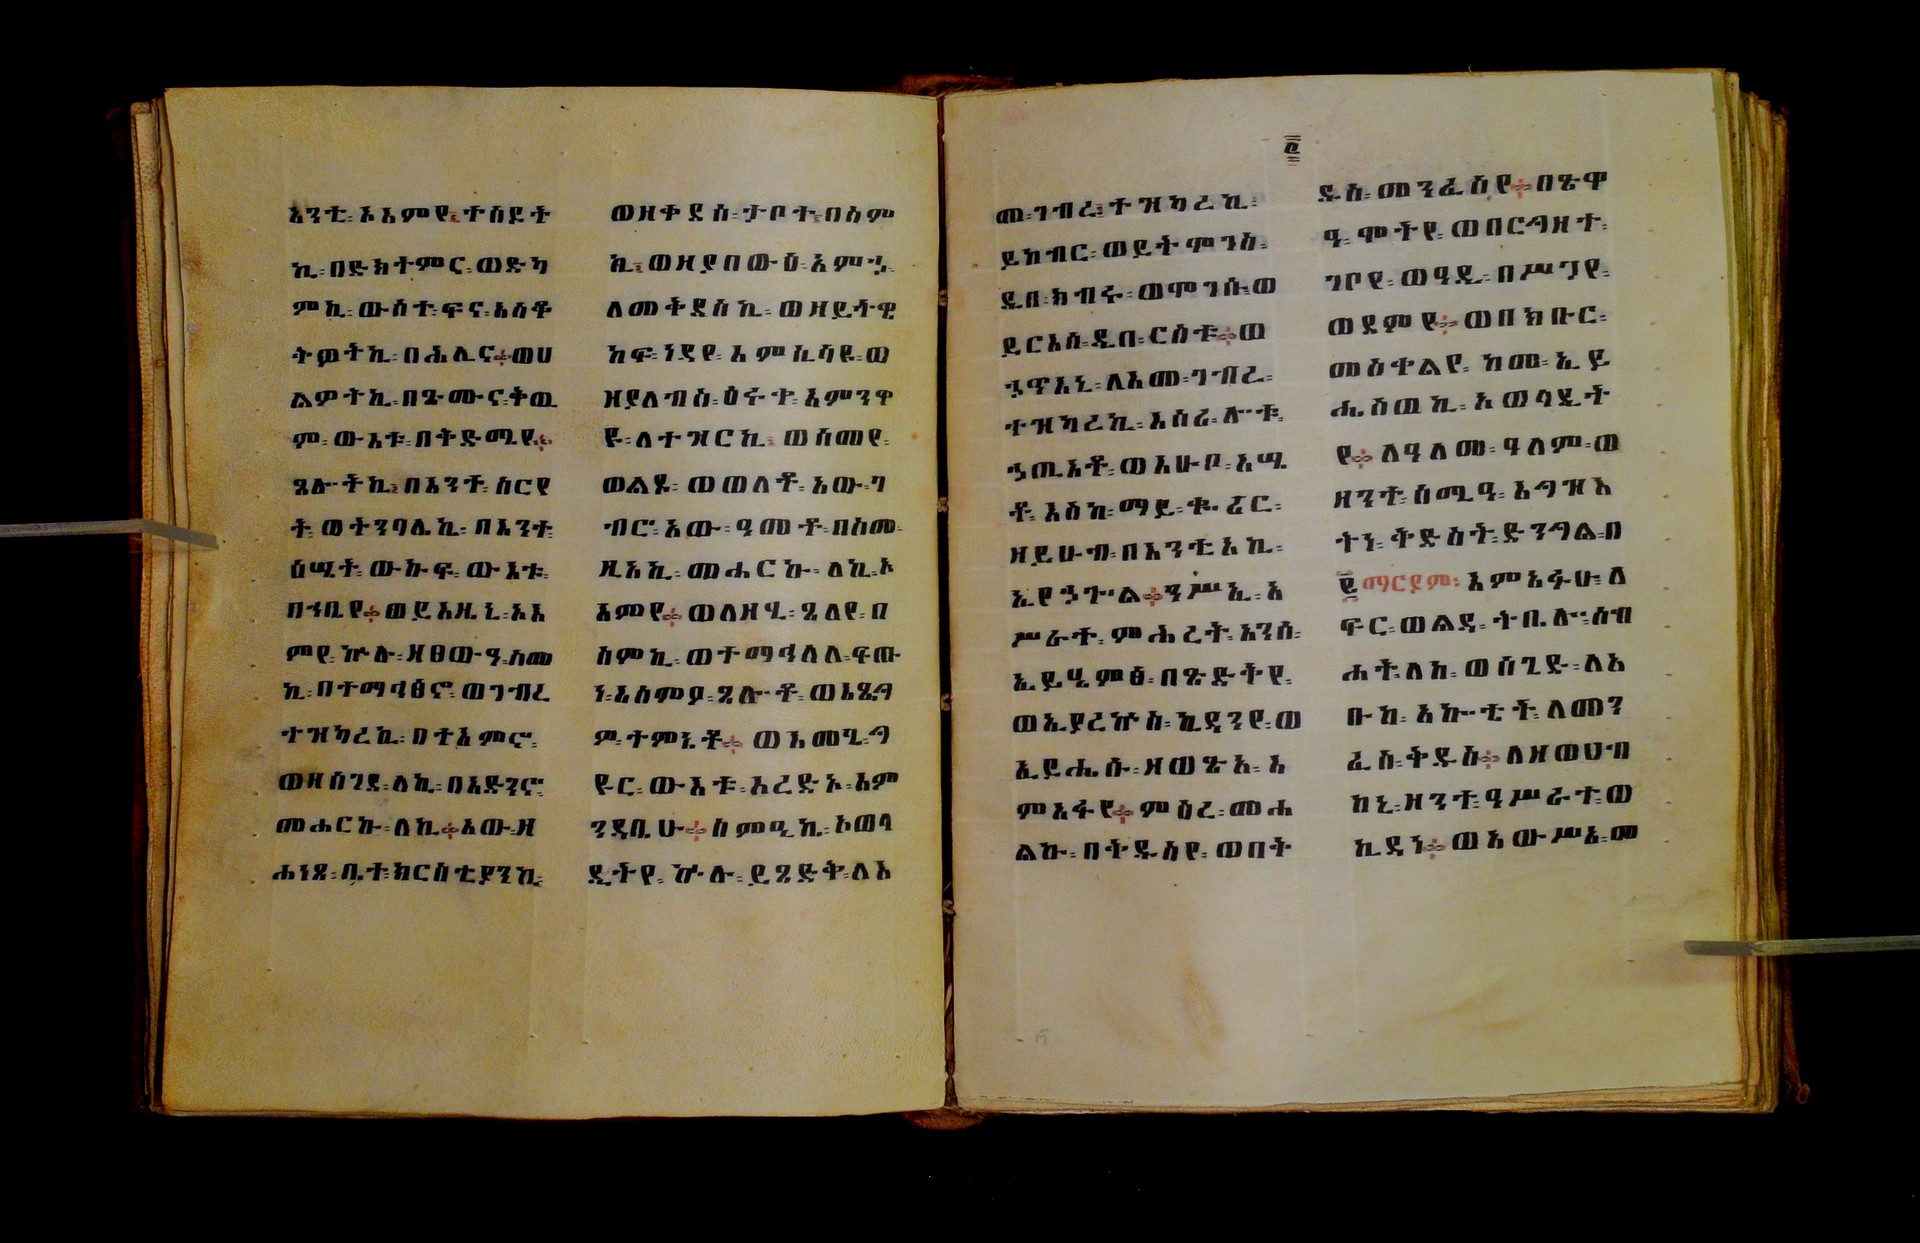 አንቲ፡ እእምየ፡ ተስደት
ኪ፡ በድክትምር፡ ወድካ
ምኪ፡ ውስተ፡ ፍና፡ አስቆ
ትወትኪ፡ በሐሊና፡ ወሀ
ልዎትኪ፡ በጼሙና፡ ቅዉ
ም፡ ውእቱ፡ በትድሚየ፡
ጼሎትኪ፡ በእንተ፡ ስርየ
ት፡ ወትንባሌኪ፡ በእንተ፡
ሰሚት፡ ውኩፍ፡ ውእቱ፡
በኀቤየ፡ ወይእዜኒ፡ እእ
ምየ፡ ኵሉ፡ ዘፀውዓ፡ ስመ
ኪ፡ በተማኅፅኖ፡ ወገብረ
ተዝካረኪ፡ በተአምሮ፡
ወዘሰገደ፡ ለኪ፡ በአድንኖ፡
መሐርኩ፡ ለኪ፡ አው፡ ዘ
ሐነጸ፡ ቤተ፡ ክርስቲያንኪ፡
ወዘቀደሰ፡ ታቦተ፡ በስም
ኪ፡ ወዘያበውዕ፡ እምኃ፡
ለመቅደስኪ፡ ወዘይትዊ
ከፍ፡ ነዳየ፡ እምኪሳዩ፡ ወ
ዘያለብስ፡ ዕሩቀ፡ እምንዋ
ዩ፡ ለተዝርኪ፡ ወሰመየ፡
ወልዱ፡ ወወለቶ፡ አው፡ ገ
ብሮ፡ አው፡ ዓመቶ፡ በስመ፡
ዚአኪ፡ መሐርኩ፡ ለኪ፡ እ
እምየ፡ ወለዘሂ፡ ጼለየ፡ በ
ስምኪ፡ ወተማኅለለ፡ ፍጡ
ነ፡ እሰምዖ፡ ጼሎቶ፡ ወእፌጽ
ም፡ ተምኔቶ፡ ወአመሂ፡ ሖ
ዩር፡ ውእቱ፡ እረድኦ፡ እም
ንዳቤሁ፡ ስምዒኪ፡ ኦወላ
ዲትየ፡ ኵሉ፡ ይጼድቅ፡ ለእ
፭
መ፡ ገብረ፡ ተዝካረኪ፡
ይከብር፡ ወይትሞገስ፡
ዲበ፡ ክብሩ፡ ወሞገሱ፡ ወ
ይርእስ፡ ዲበ፡ ርስቱ፡ ወ
ኃጥእኒ፡ ለእመ፡ ገብረ፡
ተዝካረኪ፡ እሰሪ፡ ሎቱ፡
ኃጢአቶ፡ ወእሁቦ፡ እሤ
ቶ፡ እስከ፡ ማይ፡ ቁሪር፡
ዘይሁብ፡ በእንቲአኪ፡
ኢየኃጉል፡ ንሥኢ፡ እ
ሥራተ፡ ምሕረት፡ እንሰ፡
ኢይሄምፅ፡ በጼድትየ፡
ወኢያረኵስ፡ ኪዳንየ፡ ወ
ኢይሔሱ፡ ዘወፄአ፡ እ
ምአፉየ፡ ምዕረ፡ መሐ
ልኩ፡ በቅዱስየ፡ ወበቅ
ዱስ፡ መንፈስየ፡ በጼዋ
ዓ፡ ሞትየ፡ ወበርኅዘተ፡
ገቦየ፡ ወዓዲ፡ በሥጋየ፡
ወደምየ፡ ወበክቡር፡
መስቀልየ፡ ከመ፡ ኢይ
ሔስወኪ፡ እወላዲት
የ፡ ለዓለመ፡ ዓለም፡ ወ
ዘንተ፡ ሰሚዓ፡ እግዝእ
ትነ፡ ቅድስት፡ ድንግል፡ በ
፪ማርያም፡ እምአፉሁ፡ ለ
ፍር፡ ወልዳ፡ ትቤሎ፡ ስብ
ሐት፡ ለከ፡ ወሰጊድ፡ ለአ
ቡከ፡ አኰቴት፡ ለመን
ፈስ፡ ቅዱስ፡ ለዘወሀብ
ከኒ፡ ዘንተ፡ ዓሥራተ፡ ወ
ኪዳነ፡ ወአውሥአ፡ መ